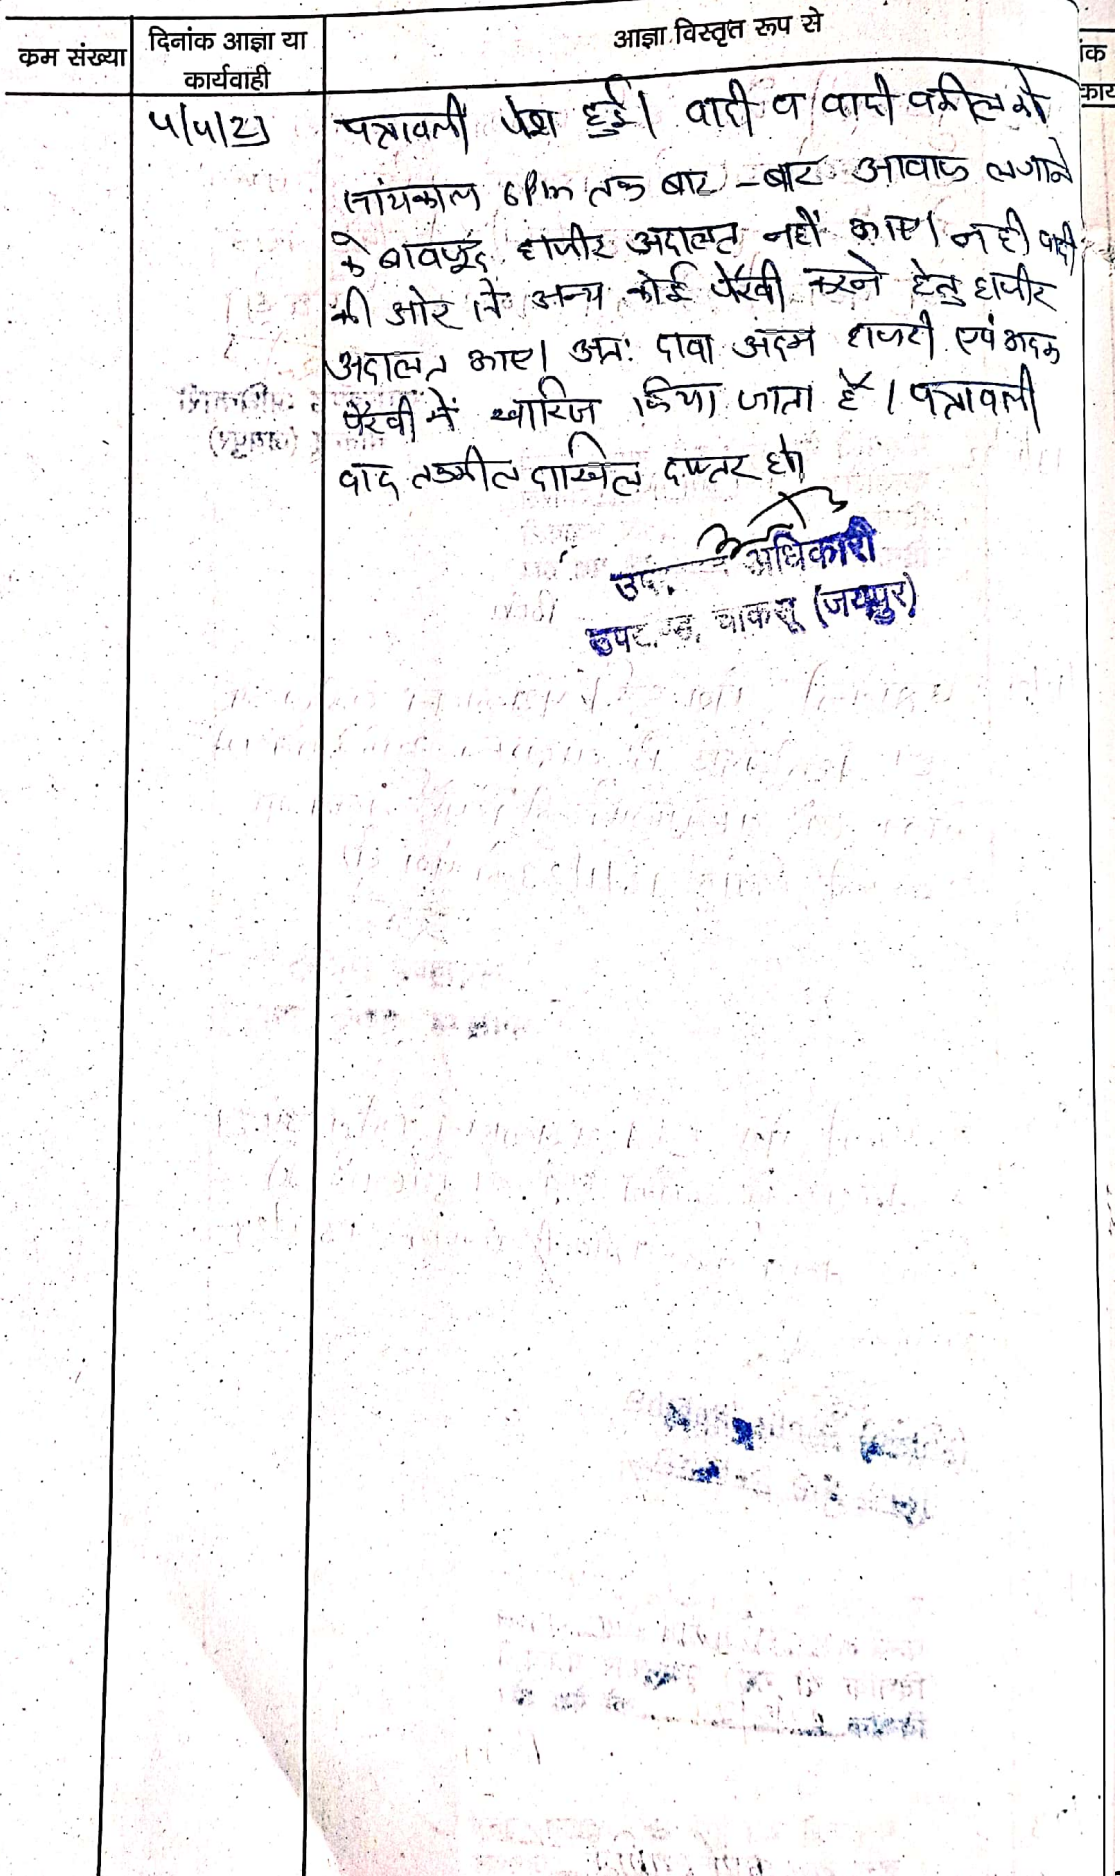 कम संख्या
दिनांक आज्ञा या
कार्यवाही
आज्ञा विस्तृत रूप से
पत्रावली पेश हुई। वादी व वादी वकील को
सांयकाल 6 Pm तक बार-बार आवाज लगाने
के बावजूद हाजीर अदालत नहीं आए। न ही वादी
की ओर से अन्य कोई पैरवी करने हेतु हाजीर
अदालत आए। अतः दावा अदम हाजरी एवं अदम
पैरवी में खारिज किया जाता है। पत्रावली
वाद तकमील दाखिल दफ्तर हो।
अधिकारी
चाकसू (जयपुर)